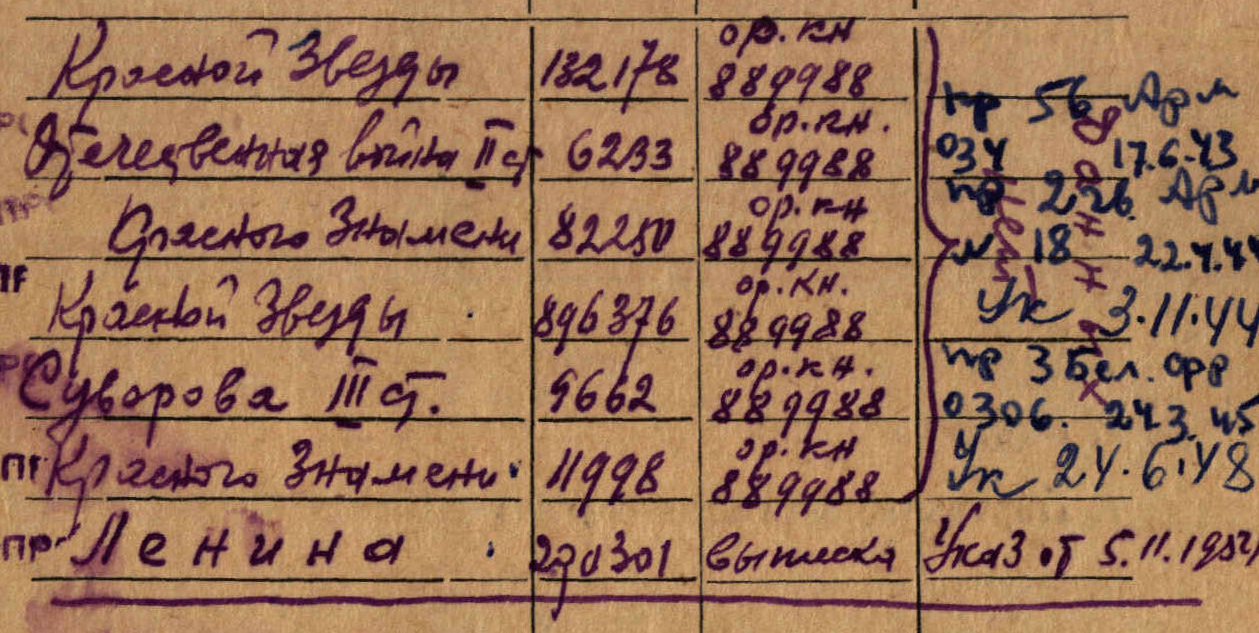 Красной Звезды 132178 ор. кн 889988
Отечественная война II ст 6233 ор. кн. 889988
Красного Знамени 82250 ор. кн 889988
Красной Звезды 896376 ор. кн. 889988
Суворова III ст. 9662 ор. кн. 889988
Красного Знамени 11998 ор. кн 889988
Ленина 290301 выписка Указ от 5.11.195
пр 56 Арм
034 17.6.43
пр 2 Арм
N 18 22.4.44
Ук 3.11.44
пр 3 Бел. фр
0306. 24.3.45
Ук 24.6.48
Данных
нет